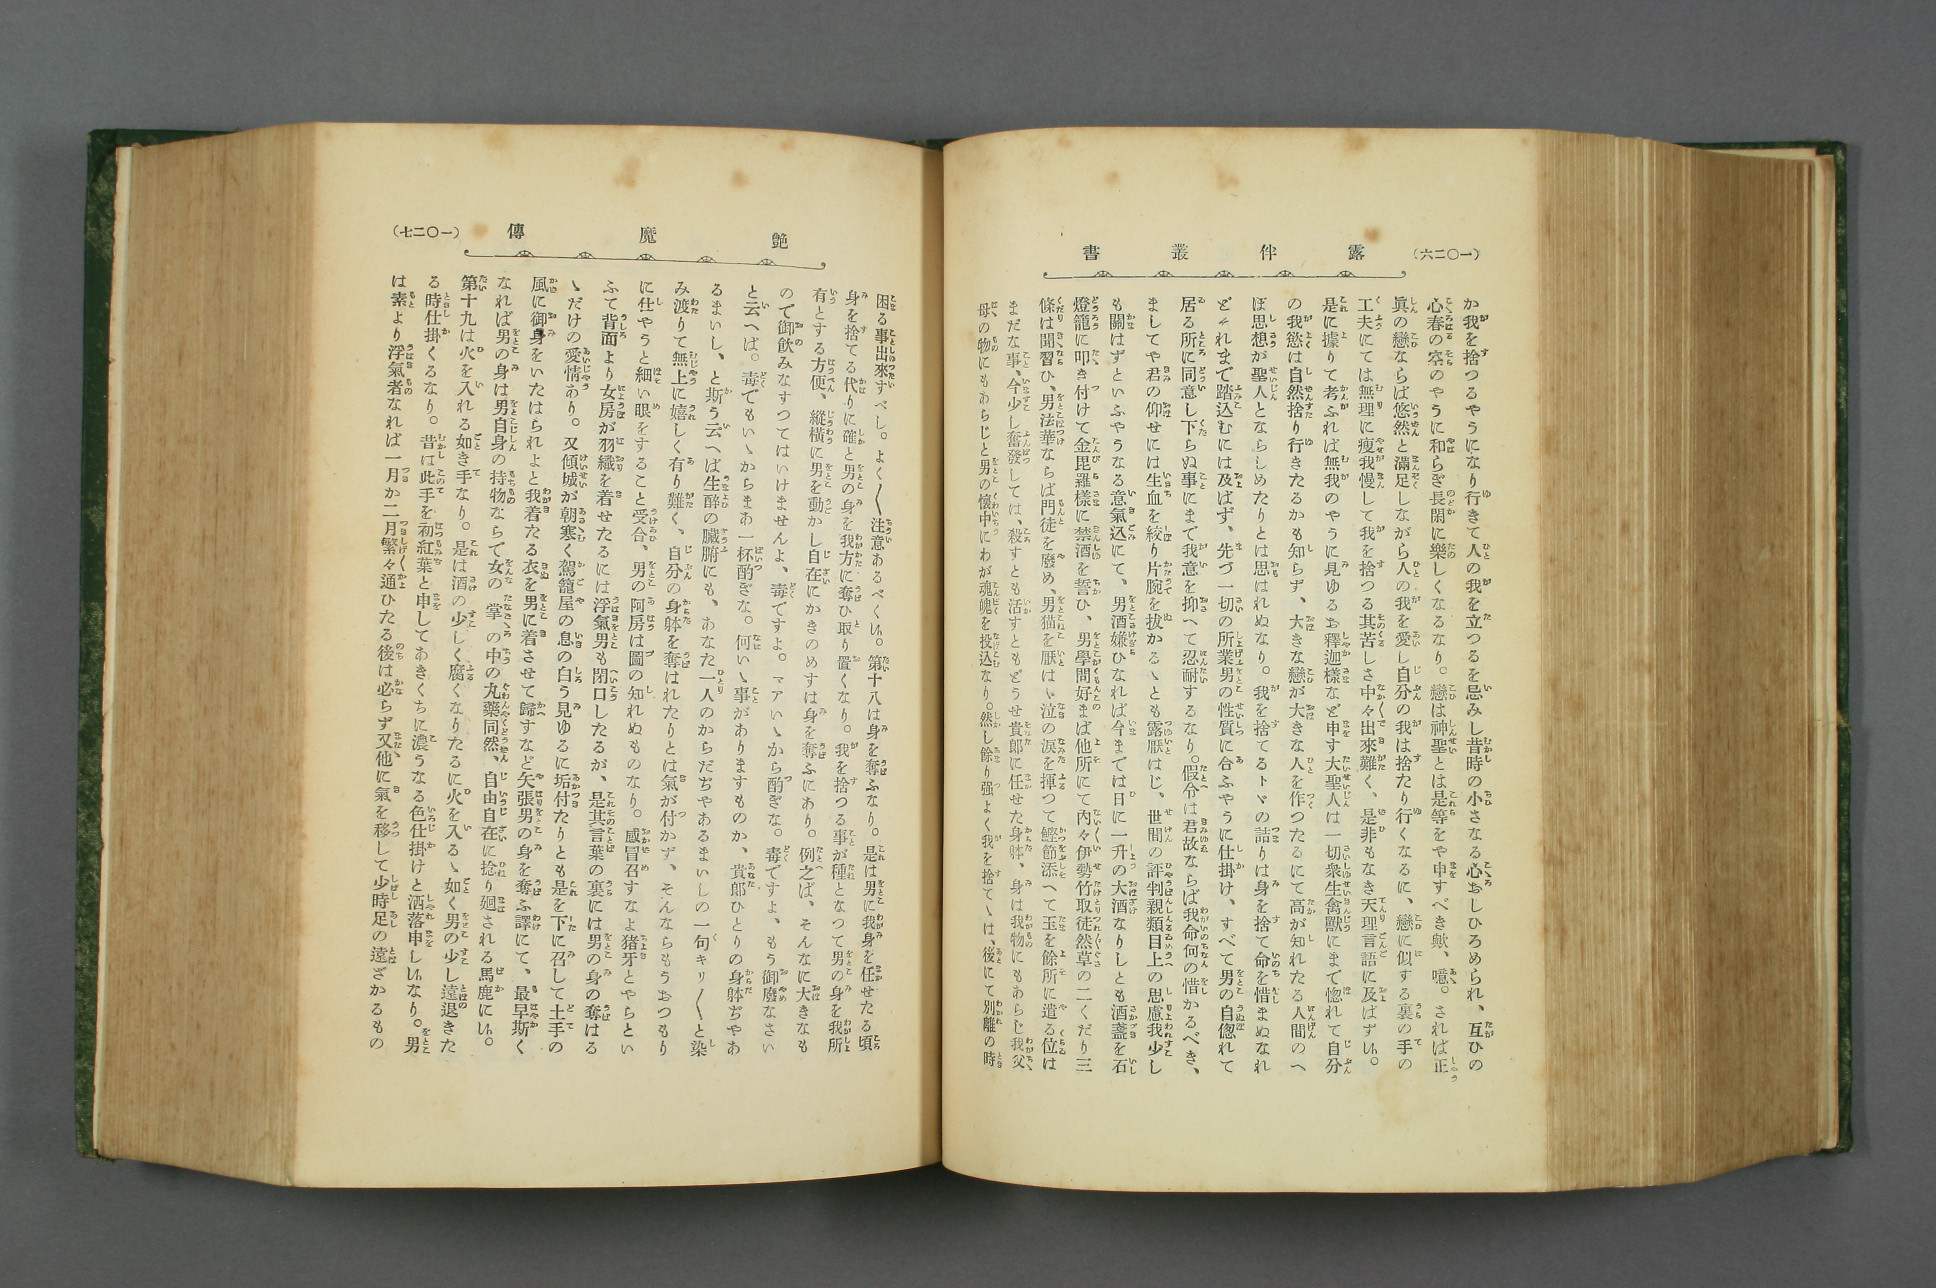 (一〇二六) 露伴叢書
か我を捨つるやうになり行きて人の我を立つるを忌みし昔時の小さなる心おしひろめられ、互ひの
心春の空のやうに和らぎ長閑に樂しくなるなり。戀は神聖とは是等をや申すべき歟、噫。されば正
眞の戀ならば悠然と滿足しながら人の我を愛し自分の我は捨たり行くなるに、戀に似する裏の手の
工夫にては無理に瘦我慢して我を捨つる其苦しさ中々出來難く、是非もなき天理言語に及ばずゐ。
是に據りて考ふれば無我のやうに見ゆるお釋迦樣など申す大聖人は一切衆生禽獸にまで惚れて自分
の我慾は自然捨り行きたるかも知らず、大きな戀が大きな人を作つたるにて高が知れたる人間のへ
ぼ思想が聖人とならしめたりとは思はれぬなり。我を捨てるトヾの詰りは身を捨て命を惜まぬなれ
どそれまで踏込むには及ばず、先づ一切の所業男の性質に合ふやうに仕掛け、すべて男の自惚れて
居る所に同意し下らぬ事にまで我意を抑へて忍耐するなり。假令は君故ならば我命何の惜かるべき、
ましてや君の仰せには生血を絞り片腕を拔かるゝとも露厭はじ、世間の評判親類目上の思慮我少し
も關はずといふやうなる意氣込にて、男酒嫌ひなれば今までは日に一升の大酒なりしとも酒盞を石
燈籠に叩き付けて金毘羅樣に禁酒を誓ひ、男學問好まば他所にて內々伊勢竹取徒然草の二くだり三
條は聞習ひ、男法華ならば門徒を廢め、男猫を厭はゝ泣の淚を揮つて鰹節添へて玉を餘所に遣る位は
まだな事、今少し奮發しては、殺すとも活すともどうせ貴郞に任せた身躰、身は我物にもあらじ我父、
母の物にもあらじと男の懷中にわが魂魄を投込なり。然し餘り强よく我を捨てゝは、後にて別離の時
(一〇二七) 艷魔傳
困る事出來すべし。よく〱注意あるべくゐ。第十八は身を奪ふなり。是は男に我身を任せたる頃
身を捨てる代りに確と男の身を我方に奪ひ取り置くなり。我を捨つる事が種となつて男の身を我所
有とする方便、縱橫に男を動かし自在にかきのめすは身を奪ふにあり。例之ば、そんなに大きなも
ので御飮みなすつてはいけませんよ、毒ですよ。マアいゝから酌ぎな。毒ですよ、もう御廢なさい
と云へば。毒でもいゝからまあ一杯酌ぎな。何いゝ事がありますものか、貴郞ひとりの身躰ぢやあ
るまいし、と斯う云へば生醉の臟腑にも、あなた一人のからだぢやあるまいしの一句キリ〱と染
み渡りて無上に嬉しく有り難く、自分の身躰を奪はれたりとは氣が付かず、そんならもうおつもり
に仕やうと細い眼をすること受合、男の阿房は圖の知れぬものなり。感冒召すなよ猪牙とやらとい
ふて背面より女房が羽織を着せたるには浮氣男も閉口したるが、是其言葉の裏には男の身の奪はる
ゝだけの愛情あり。又傾城が朝寒く駕籠屋の息の白う見ゆるに垢付たりとも是を下に召して土手の
風に御身をいたはられよと我着たる衣を男に着させて歸すなど矢張男の身を奪ふ譯にて、最早斯く
なれば男の身は男自身の持物ならで女の掌の中の丸藥同然、自由自在に捻り廻される馬鹿にゐ。
第十九は火を入れる如き手なり。是は酒の少しく腐くなりたるに火を入るゝ如く男の少し遠退きた
る時仕掛くるなり。昔は此手を初紅葉と申してあきくちに濃うなる色仕掛けと洒落申しゐなり。男
は素より浮氣者なれば一月か二月繁々通ひたる後は必らず又他に氣を移して少時足の遠ざかるもの